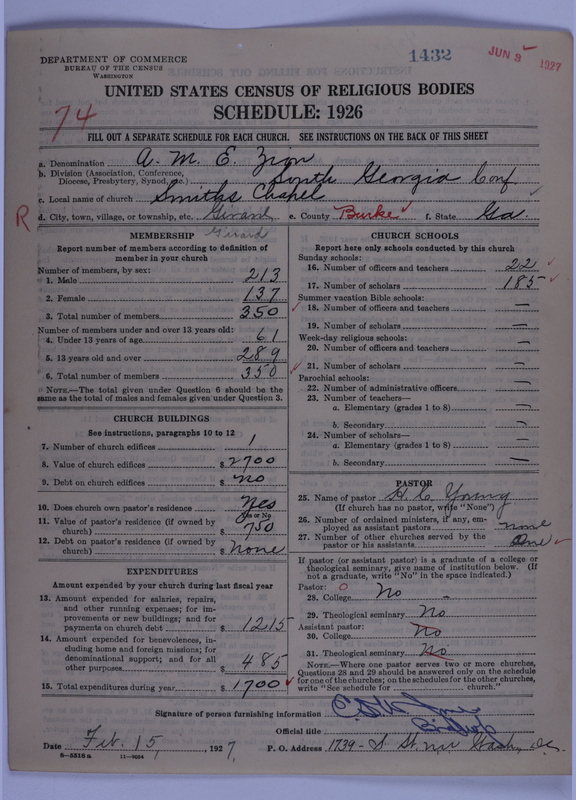 DEPARTMENT OF COMMERCE
BUREAU OF THE CENSUS
WASHINGTON
1432
JUN 9 1927
UNITED STATES CENSUS OF RELIGIOUS BODIES
SCHEDULE: 1926
74
FILL OUT A SEPARATE SCHEDULE FOR EACH CHURCH. SEE INSTRUCTIONS ON THE BACK OF THIS SHEET
a. Denomination A. M. E. Zion
b. Division (Association, Conference, Diocese, Presbytery, Synod, etc.) South Georgia Conf
c. Local name of church Smiths Chapel
R
d. City, town, village, or township, etc. Girard e. County Burke f. State Ga.
Girard
MEMBERSHIP
Report number of members according to definition of
member in your church
Number of members, by sex:
1. Male 213
2. Female 137
3. Total number of members 350
Number of members under and over 13 years old:
4. Under 13 years of age 61
5. 13 years old and over 289
6. Total number of members 350
NOTE.—The total given under Question 6 should be
same as the total of males and females given under Question 3.
CHURCH BUILDINGS
See instructions, paragraphs 10 to 12
7. Number of church edifices 1
8. Value of church edifices $ 2700
9. Debt on church edifices $ no
10. Does church own pastor's residence? Yes
Yes or No
11. Value of pastor's residence (if owned by
church) $ 750
12. Debt on pastor's residence (if owned by
church) $ None
EXPENDITURES
Amount expended by your church during last fiscal year
13. Amount expended for salaries, repairs,
and other running expenses; for im-
provements or new buildings; and for
payments on church debt $ 1215
14. Amount expended for benevolences, in-
cluding home and foreign missions; for
denominational support; and for all
other purposes $ 485
15. Total expenditures during year $ 1700
CHURCH SCHOOLS
Report here only schools conducted by this church
Sunday schools:
16. Number of officers and teachers 22
17. Number of scholars 185
Summer vacation Bible schools:
18. Number of officers and teachers —
19. Number of scholars —
Week-day religious schools:
20. Number of officers and teachers —
21. Number of scholars —
Parochial schools:
22. Number of administrative officers —
23. Number of teachers—
a. Elementary (grades 1 to 8) —
b. Secondary —
24. Number of scholars—
a. Elementary (grades 1 to 8) —
b. Secondary —
PASTOR
25. Name of pastor H. C. Young
(If church has no pastor, write "None")
26. Number of ordained ministers, if any, em-
ployed as assistant pastors none
27. Number of other churches served by the
pastor or his assistants One
If pastor (or assistant pastor) is a graduate of a college or
theological seminary, give name of institution below. (If
not a graduate, write "No" in the space indicated.)
Pastor: 0
28. College No
29. Theological seminary No
Assistant pastor:
30. College No
31. Theological seminary No
NOTE.—Where one pastor serves two or more churches,
Questions 28 and 29 should be answered only on the schedule
for one of the churches; on the schedules for the other churches,
write "See schedule for church."
Signature of person furnishing information
Official title Bishop
Date Feb. 15, 1927, P. O. Address 1739 - S St. nw Wash, D.C.
8—5518 a 11—9034